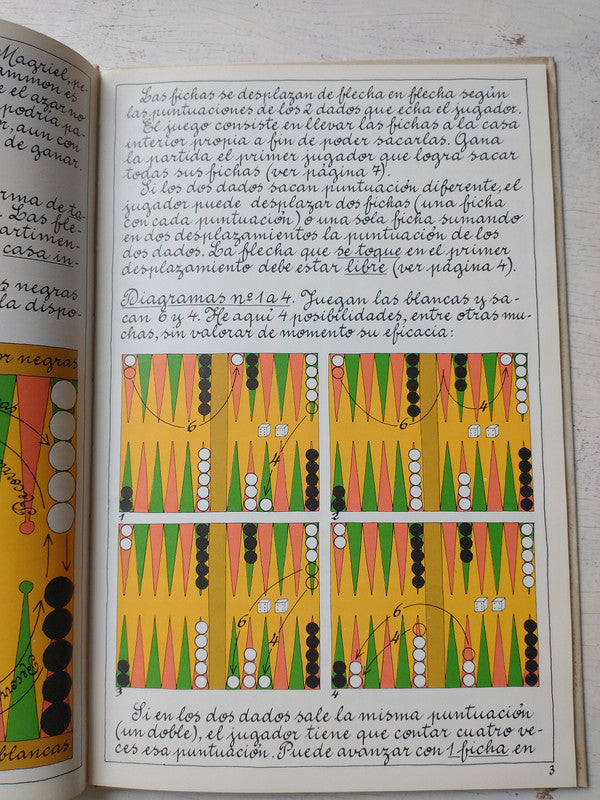 Magriel, pe-
ammon es
e el azar no
podría pa-
r, aun con
de ganar.
rma de ta-
. Las fle-
artimen-
casa in-
s negras
la dispo-
or negras
blancas
Las fichas se desplazan de flecha en flecha según
las puntuaciones de los 2 dados que echa el jugador.
El juego consiste en llevar las fichas a la casa
interior propia a fin de poder sacarlas. Gana
la partida el primer jugador que logra sacar
todas sus fichas (ver página 7).
Si los dos dados sacan puntuación diferente, el
jugador puede desplazar dos fichas (una ficha
con cada puntuación) o una sola ficha sumando
en dos desplazamientos la puntuación de los
dos dados. La flecha que se toque en el primer
desplazamiento debe estar libre (ver página 4).
Diagramas nº 1 a 4. Juegan las blancas y sa-
can 6 y 4. He aquí 4 posibilidades, entre otras mu-
chas, sin valorar de momento su eficacia:
6
4
1
6
4
2
6
4
3
6
4
4
Si en los dos dados sale la misma puntuación
(un doble), el jugador tiene que contar cuatro ve-
ces esa puntuación. Puede avanzar con 1 ficha en
3